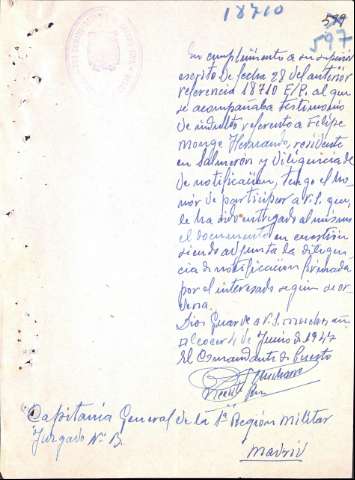 18710
589
597
En cumplimiento a su superior
escrito de fecha 28 del anterior
referencia 18710 E/P. al que
se acompañaba testimonio
de indulto referente a Felipe
Monge Hernando, residente
en Salmerón y diligencia de
de notificacion, tengo el ho-
nor de participar a V.S. que
le ha sido entregado al mismo
el documento en cuestion
siendo adjunta la diligen-
cia de notificacion firmada
por el interesado segun se or-
dena.
Dios Guarde a V.S. muchos añ
4 de Junio de 1947
El Comandante de Puesto
Capitania General de la 1ª Región Militar
Juzgado Nº
Madrid